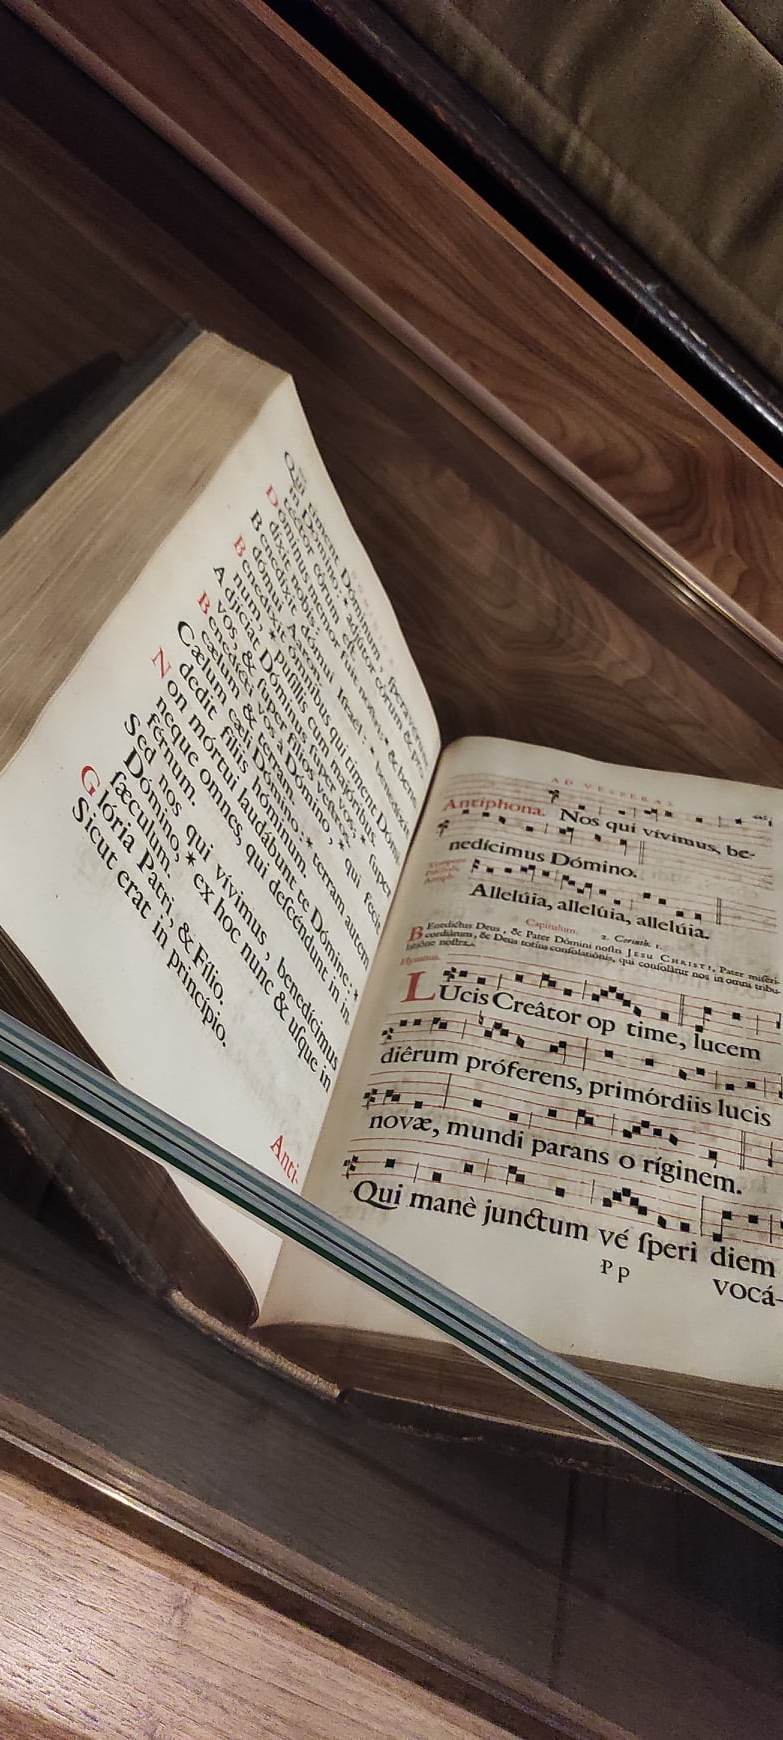 Qui timent Dóminum, ſperavérunt
in Dómino: * adjútor eórum & pro-
téctor eórum eſt.
Dóminus memor fuit noſtri: * & bene-
díxit nobis.
Benedíxit dómui Iſrael: * benedíxit
dómui Aaron.
Benedíxit ómnibus qui timent Dómi-
num, * puſíllis cum majóribus.
Adjíciat Dóminus ſuper vos, * ſuper
vos, & ſuper fílios veſtros.
Benedícti vos à Dómino, * qui fecit
cælum & terram.
Cælum cæli Dómino: * terram autem
dedit fíliis hóminum.
Non mórtui laudábunt te Dómine: *
neque omnes, qui deſcéndunt in in-
férnum.
Sed nos qui vívimus, benedícimus
Dómino, * ex hoc nunc & uſque in
ſæculum.
Glória Patri, & Fílio.
Sicut erat in princípio.
Anti-
AD VESPERAS
Antiphona. Nos qui vívimus, be-
nedícimus Dómino.
Allelúia, allelúia, allelúia.
Capitulum. 2. Corinth. 1.
BEnedíctus Deus, & Pater Dómini noſtri JESU CHRISTI, Pater miſeri-
cordiárum, & Deus totíus conſolatiónis, qui conſolátur nos in omni tribu-
latióne noſtra.
Hymnus.
LUcis Creâtor op time, lucem
diêrum próferens, primórdiis lucis
novæ, mundi parans o ríginem.
Qui manè junctum vé ſperi diem
P p vocá-